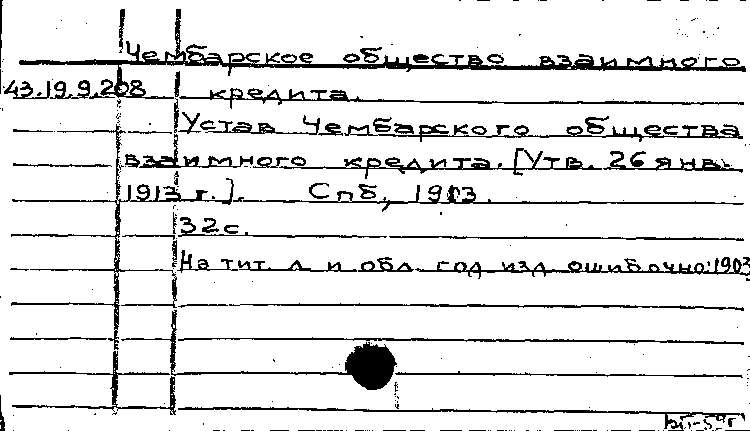 Чембарское общество взаимного
43.19.9.208 кредита.
Устав Чембарского общества
взаимного кредита. [Утв. 26 янв.
1913 г.]. Спб, 1913.
32 с.
На тит. л. и обл. год изд. ошибочно: 1903